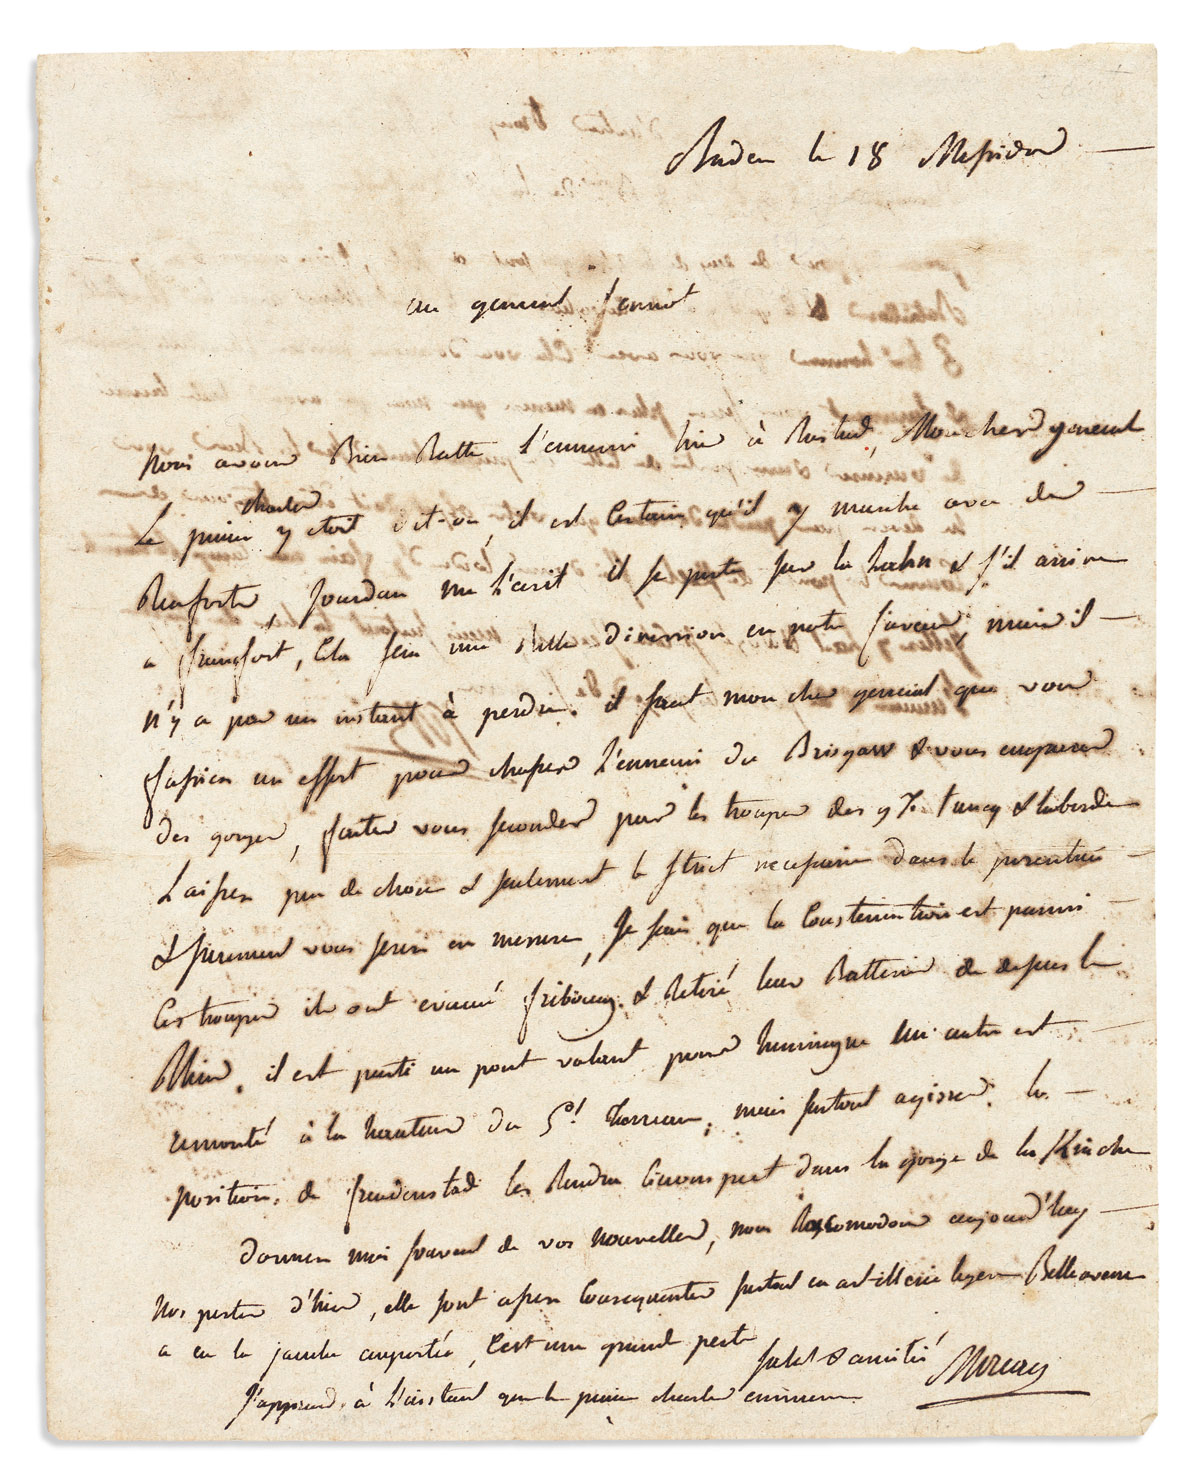 Baden le 18 Messidor
au general ferinot
nous avons Bien Battu l'ennemi hier à Rastad, Mon cher general
Le prince charles y etoit dit-on, il est Certain qu'il y marche avec des
Renforts, Jourdan me l'ecrit il se porte sur la Lahn & s'il arrive
a francfort, Cela fera une Belle diversion en notre faveur, mais il
n'y a pas un instant à perdre. il faut mon cher general que vous
fassiez un effort pour chasser l'ennemi du Brisgaw & vous emparer
des gorges, faites vous seconder par les troupes des g.aux tuncq & laborde
Laissez peu de chose & seulement le strict necessaire dans le
& surement vous serez en mesure, Je sais que la Consternation est parmi
Ces troupes ils ont evacué fribourg. & Retiré leurs Batteries de dessus le
Rhin. il est parti un pont volant pour huningue un autre est
remonté à la hauteur du g.al Tharreau, mais surtout agissez. la
position de freudenstad les Rendra Circonspect dans la gorge de la Kinche
donnez moi souvent de vos nouvelles, nous Raccomodons aujourd'huy
Nos pertes d'hier, elle sont assez Consequentes surtout en artillerie legere Belleavene
a eu la jambe emportée, C'est une grande perte
salut & amitié Moreau
J'apprends à l'instant que le prince charles